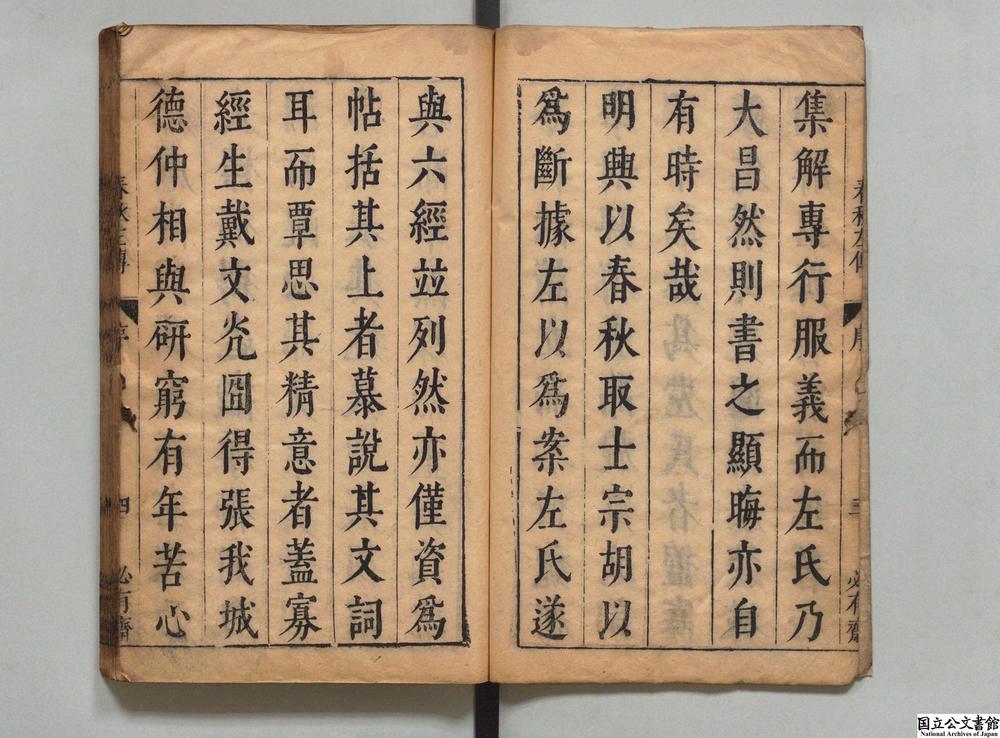 集解專行服義而左氏乃
大昌然則書之顯晦亦自
有時矣哉
明興以春秋取士宗胡以
為斷據左以為案左氏遂
與六經竝列然亦僅資為
帖括其上者慕說其文詞
耳而覃思其精意者蓋寡
經生戴文光囧得張我城
德仲相與研窮有年苦心
春秋左傳 序 三 必有齋
春秋左傳 序 四 必有齋
国立公文書館
National Archives of Japan